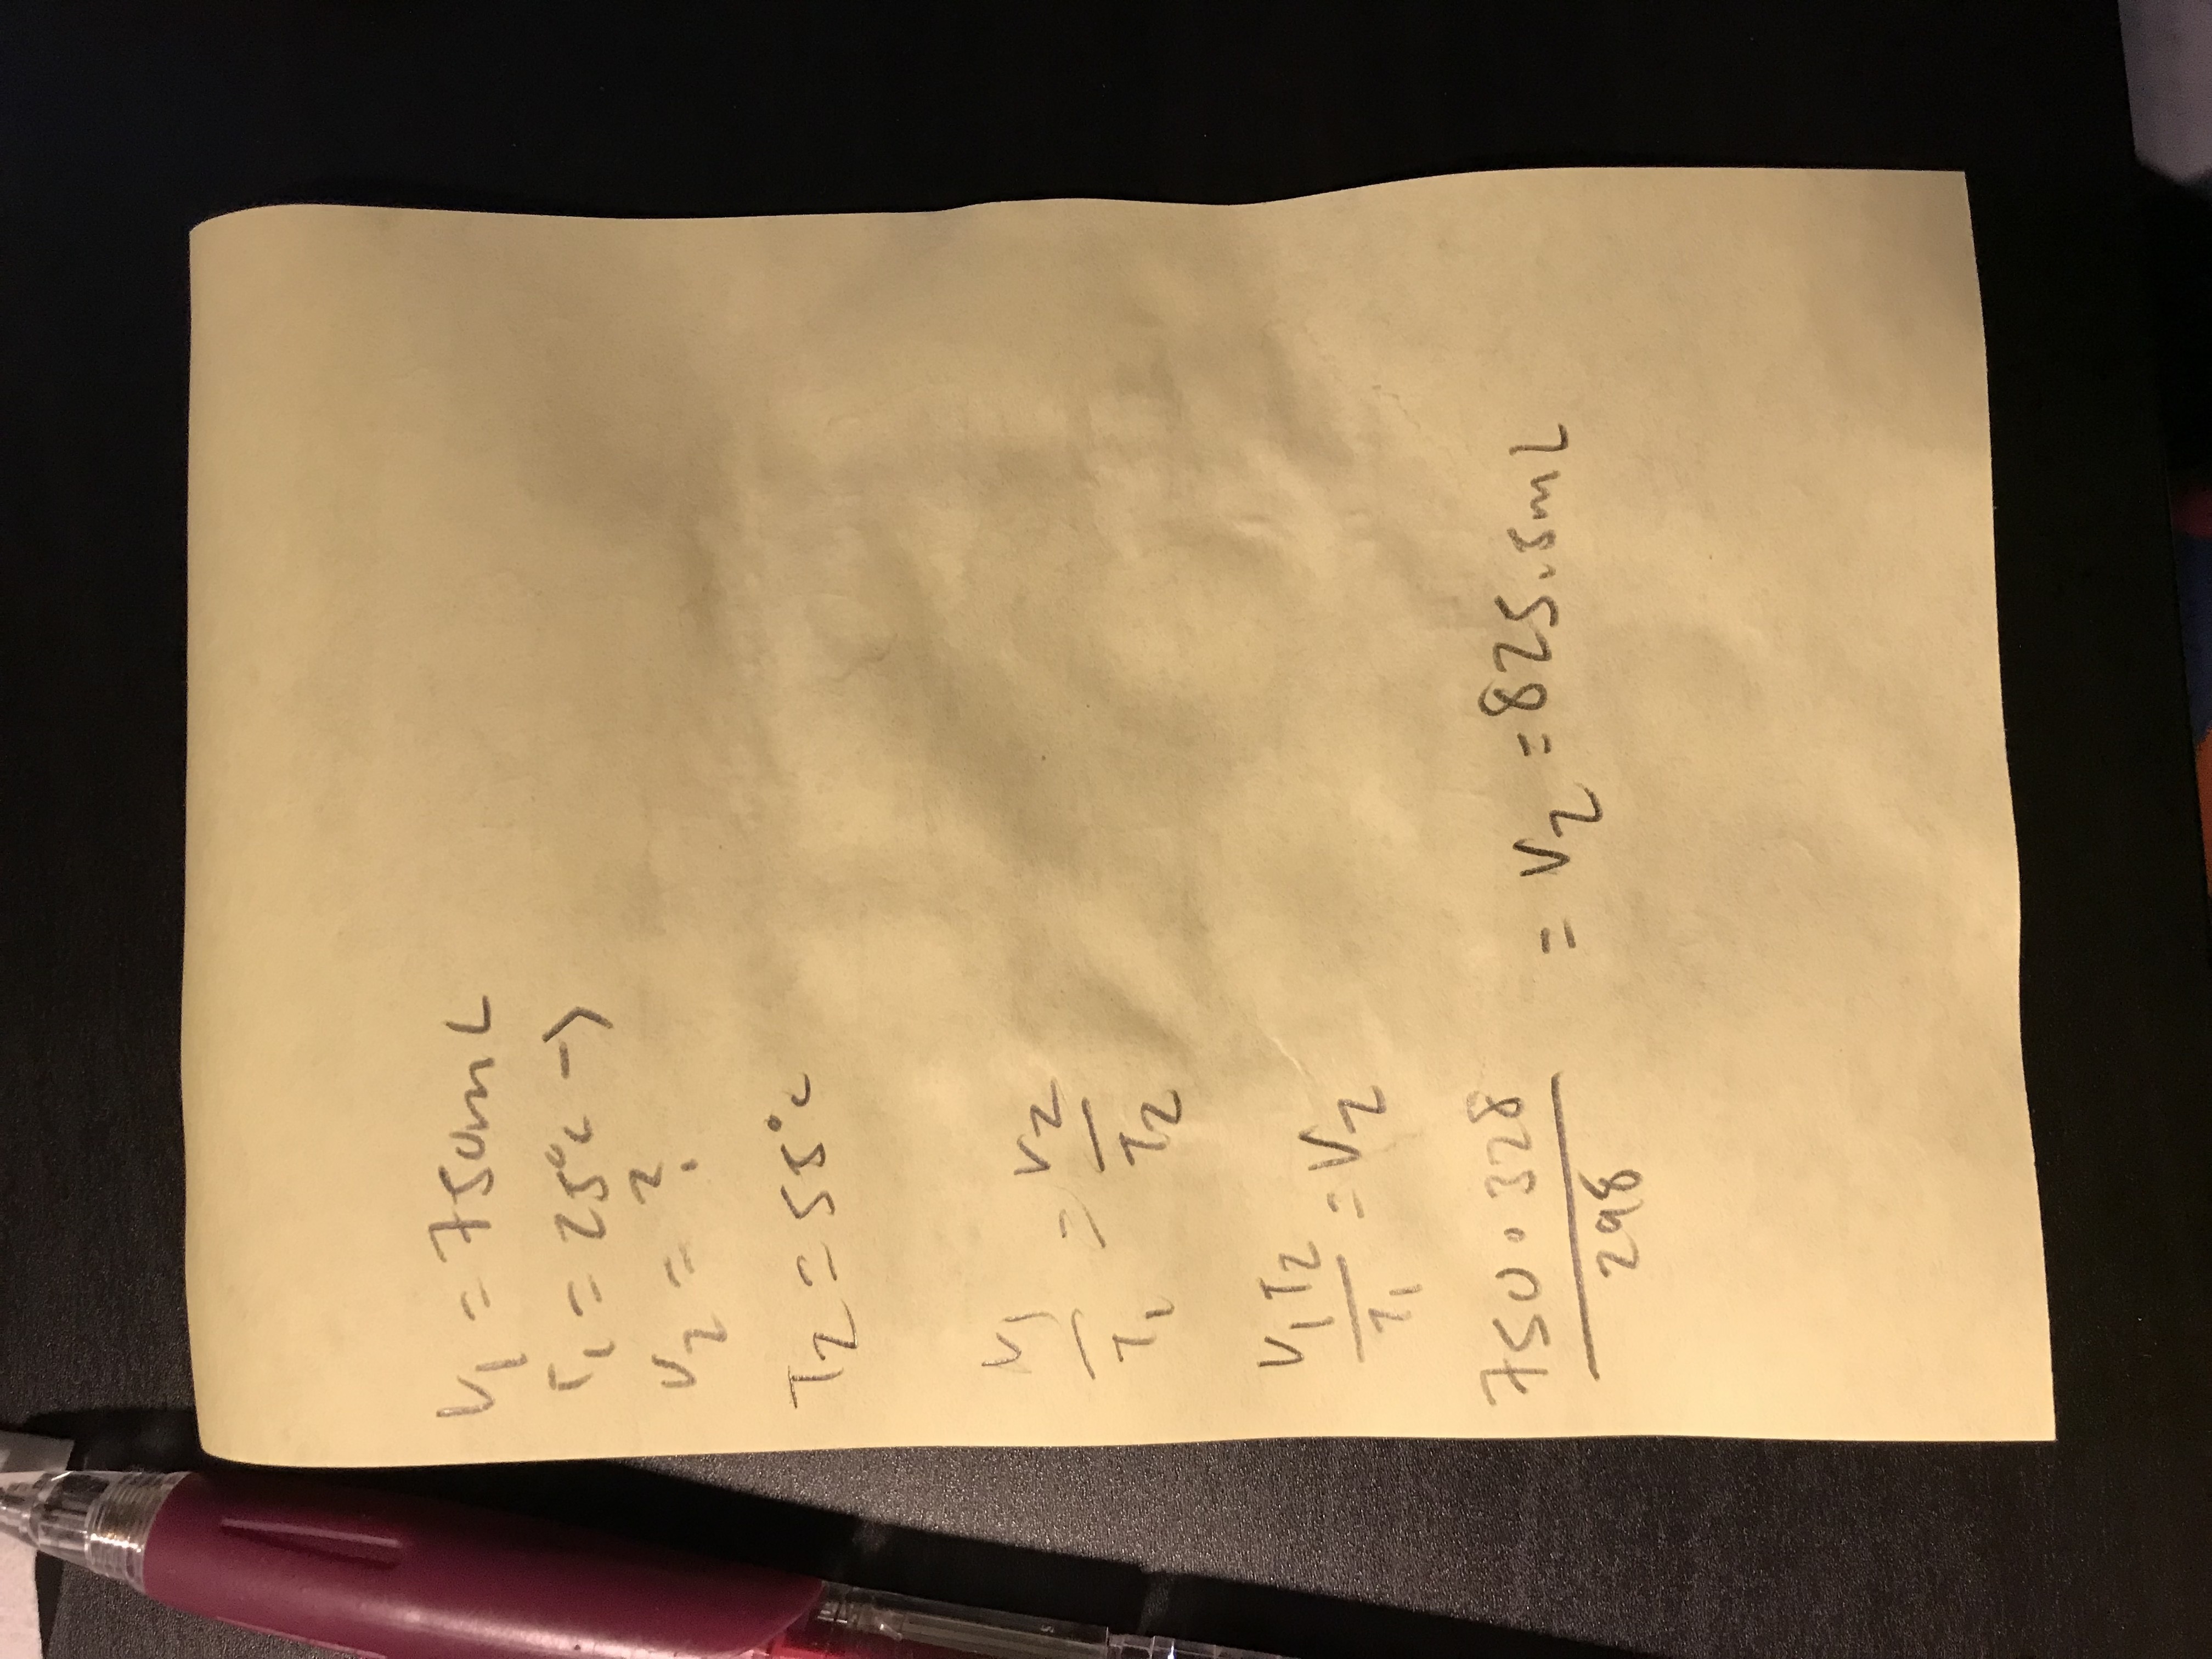 V1 = 750mL
T1 = 25°C →
V2 = ?
T2 = 55°C
V1/T1 = V2/T2
V1T2/T1 = V2
750 · 328/298 = V2 = 825.5mL